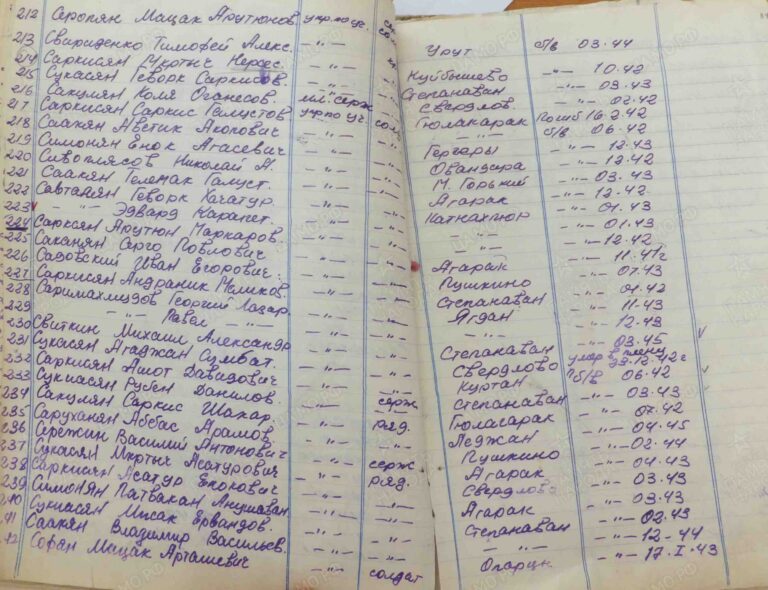 212 Серопян Мацак Арутюнов. укр. по уч.
213 Свириденко Тимофей Алекс. -"- Урут б/в 03.44
214 Саркисян Мкртыч Нерсес. -"- Куйбышево -"- 10.42
215 Сукасян Геворк Саркисов. -"- Степанаван -"- 03.43
216 Сакулян Коля Оганесов. -"- Свердлов. -"- 02.42
217 Саркисян Саркис Галустов мл. серж Гюлакарак Погиб 16.2.42
218 Саакян Аветик Акопович укр по уч. солд -"- б/в 06.42
219 Симонян Енок Агасевич -"- Гергеры -"- 12.43
220 Сивоплясов Николай А. -"- Овандара -"- 12.42
221 Саакян Телемак Галуст. -"- М. Горький -"- 03.43
222 Савталян Геворк Хачатур. -"- Агарак -"- 12.42
223 -"- Эдвард Карапет. -"- Катнахпюр -"- 01.43
224 Сарксян Арутюн Маркаров. -"- -"- -"- 01.43
225 Саканян Серго Павлович -"- -"- -"- 12.42
226 Садовский Иван Егорович. -"- Агарак -"- 11.41г
227 Саркисян Андраник Меликов. -"- Пушкино -"- 07.43
228 Саримахмудов Георгий Лазар. -"- Степанаван -"- 01.42
229 -"- Павел -"- -"- Ягдан -"- 11.43
230 Свиткин Михаил Александр -"- -"- -"- 12.43
231 Сукасян Агаджан Сумбат. -"- Степанаван -"- 03.45
232 Саркисян Ашот Давидович -"- Свердлово умер в плену 29.12.42г
233 Сукиасян Рубен Данилов. -"- Куртан б/в 06.42
234 Сакулян Саркис Шахар. -"- серж Степанаван -"- 03.43
235 Саруханян Аббас Арамов. -"- ряд. Гюлагарак -"- 07.42
236 Сережин Василий Антонович -"- Леджан -"- 04.45
237 Сукасян Мкртыч Асатурович -"- Пушкино -"- 02.44
238 Саркисян Асатур Енокович -"- серж Агарак -"- 04.43
239 Симонян Патвакан Анушаван -"- ряд. Свердлово -"- 03.43
240 Сукиасян Мисак Ервандов. -"- Агарак -"- 03.43
41 Саакян Владимир Васильев. -"- Степанаван -"- 02.43
42 Софян Мацак Арташевич -"- -"- -"- 12-44
солдат Опарцы -"- 17.I.43